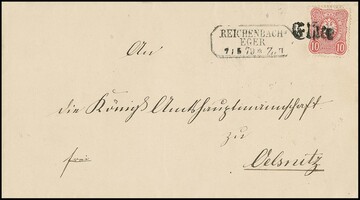 REICHENBACH-
EGER
10 10
An
die Königl. Amtshauptmannschaft
zu
Oelsnitz
frei